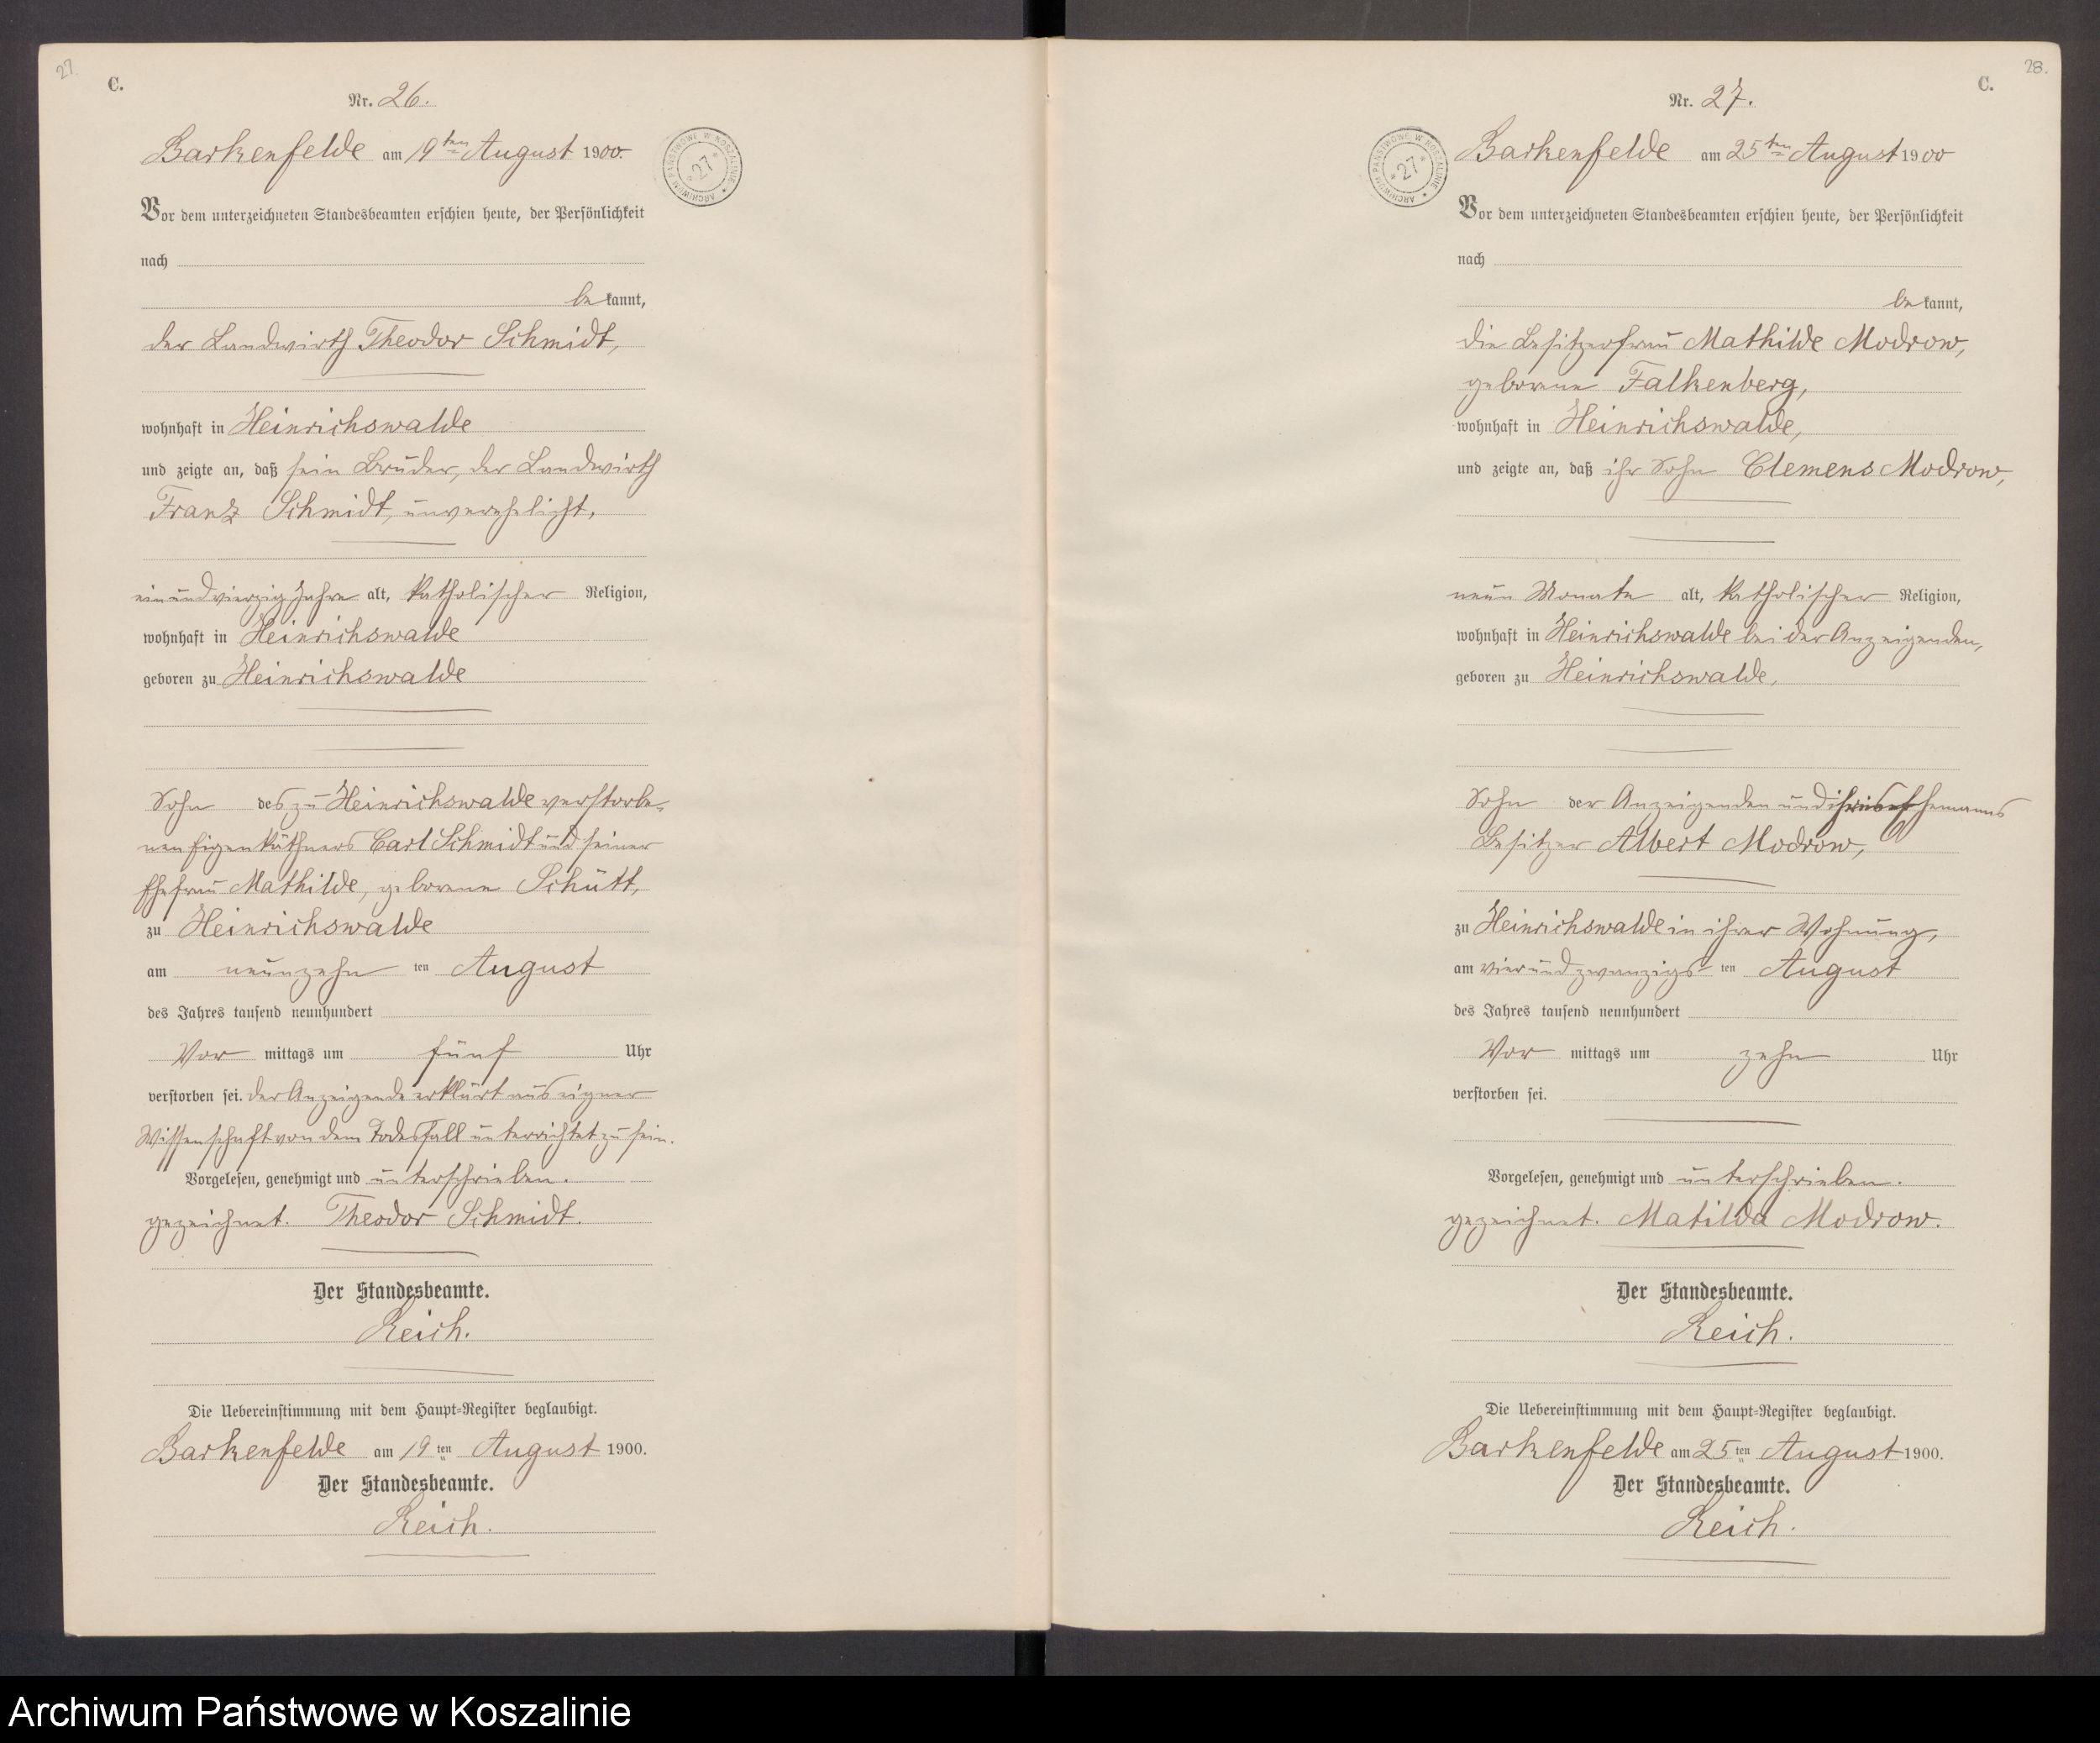 27.
C.
Nr. 26.
Barkenfelde am 19ten August 1900.
ARCHIWUM PAŃSTWOWE W KOSZALINIE * 27 *
Vor dem unterzeichneten Standesbeamten erschien heute, der Persönlichkeit
nach
bekannt,
der Landwirth Theodor Schmidt,
wohnhaft in Heinrichswalde
und zeigte an, daß sein Bruder, der Landwirth
Franz Schmidt, unverehelicht,
einundvierzig Jahre alt, katholischer Religion,
wohnhaft in Heinrichswalde
geboren zu Heinrichswalde
Sohn des zu Heinrichswalde verstorbe-
nen Eigenkäthners Carl Schmidt und seiner
Ehefrau Mathilde, geborene Schütt,
zu Heinrichswalde
am neunzehn ten August
des Jahres tausend neunhundert
Vor mittags um fünf Uhr
verstorben sei. Der Anzeigende erklärt aus eigner
Wissenschaft von dem Todesfall unterrichtet zu sein.
Vorgelesen, genehmigt und unterschrieben.
gezeichnet. Theodor Schmidt.
Der Standesbeamte.
Reich.
Die Uebereinstimmung mit dem Haupt-Register beglaubigt.
Barkenfelde am 19 ten August 1900.
Der Standesbeamte.
Reich.
28.
C.
Nr. 27.
Barkenfelde am 25ten August 1900
ARCHIWUM PAŃSTWOWE W KOSZALINIE * 27 *
Vor dem unterzeichneten Standesbeamten erschien heute, der Persönlichkeit
nach
bekannt,
die Besitzerfrau Mathilde Modrow,
geborene Falkenberg,
wohnhaft in Heinrichswalde,
und zeigte an, daß ihr Sohn Clemens Modrow,
neun Monate alt, katholischer Religion,
wohnhaft in Heinrichswalde bei der Anzeigenden,
geboren zu Heinrichswalde,
Sohn der Anzeigenden und ihres Ehemanns
Besitzer Albert Modrow,
zu Heinrichswalde in ihrer Wohnung,
am vierundzwanzigs- ten August
des Jahres tausend neunhundert
Vor mittags um zehn Uhr
verstorben sei.
Vorgelesen, genehmigt und unterschrieben.
gezeichnet. Matilda Modrow.
Der Standesbeamte.
Reich.
Die Uebereinstimmung mit dem Haupt-Register beglaubigt.
Barkenfelde am 25 ten August 1900.
Der Standesbeamte.
Reich.
Archiwum Państwowe w Koszalinie